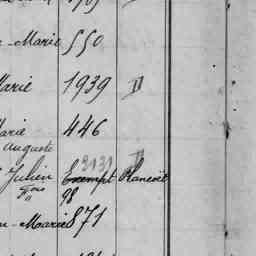 -Marie 550
Marie 1939 D
Marie 446
Auguste
3131 D
Julien Exempt Plancoët
98
-Marie 871